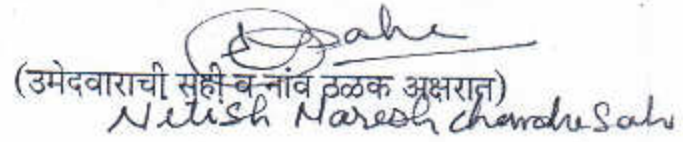 Sahu
(उमेदवाराची सही व नांव ठळक अक्षरात)
Nitish Naresh chandra Sahu